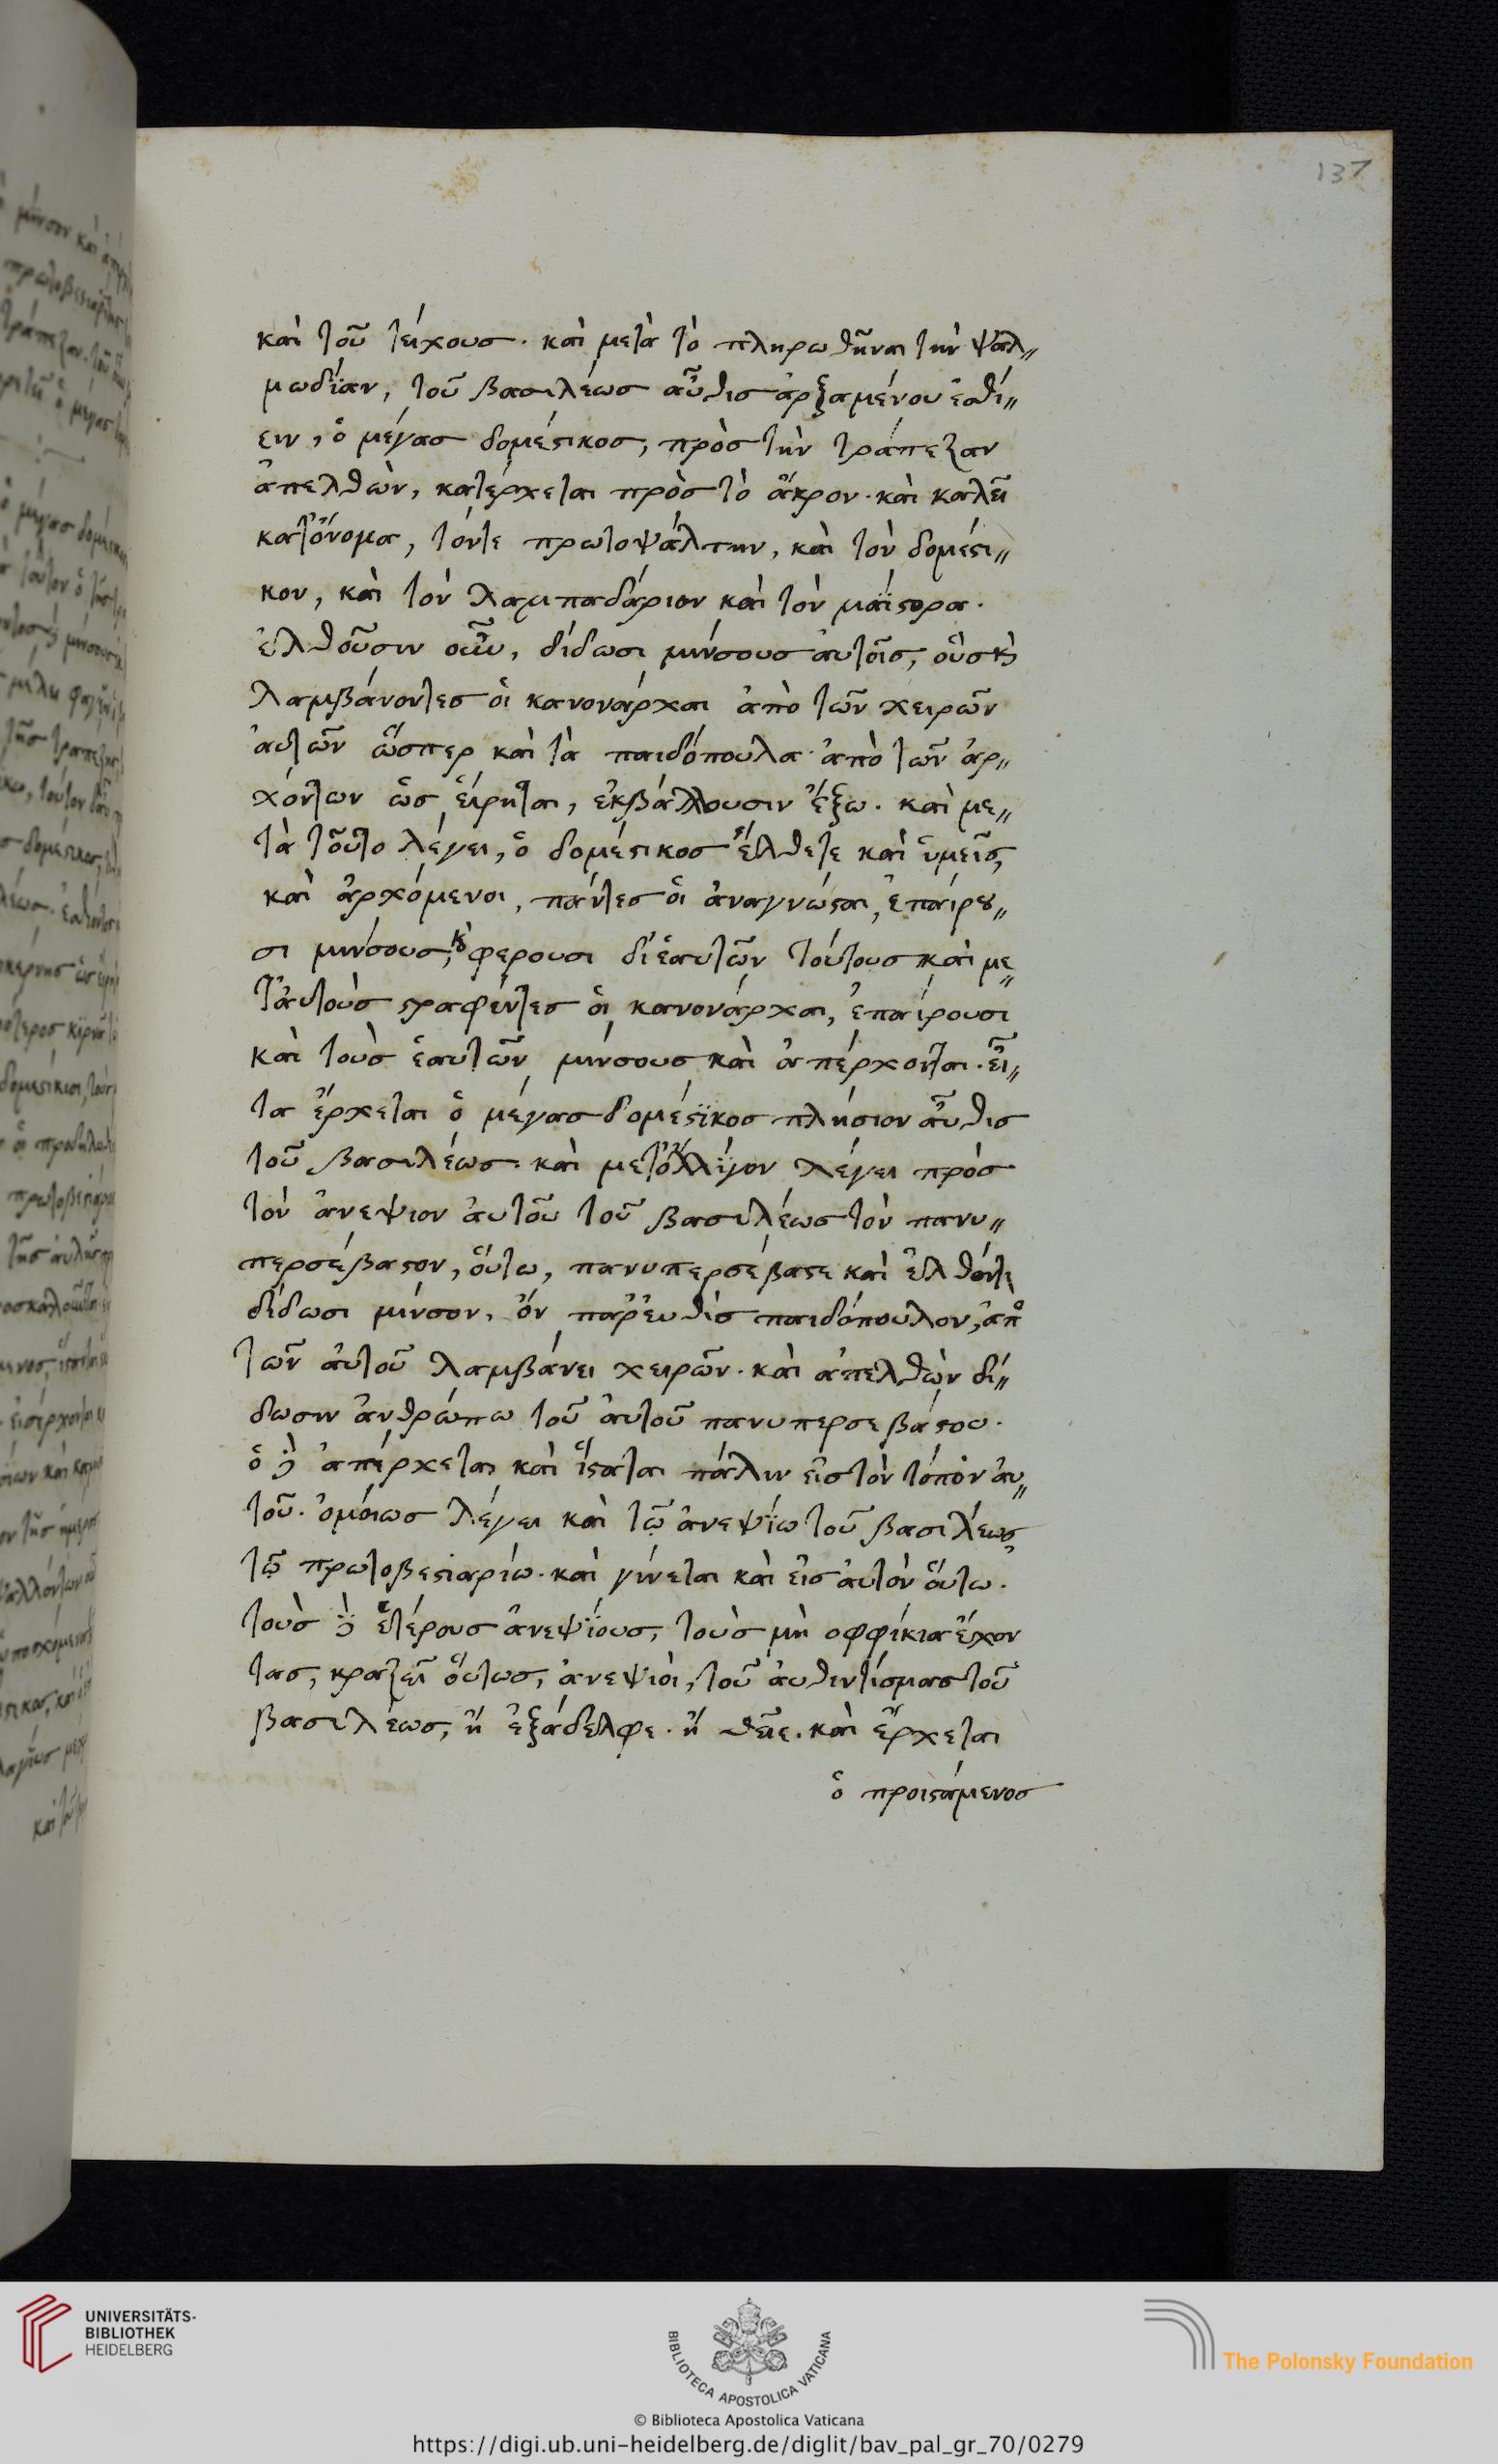 137
καὶ τοῦ τείχους· καὶ μετὰ τὸ πληρωθῆναι τὴν ψαλ〃
μωδΐαν, τοῦ βασιλέως αὖθις ἀρξαμένου ἐσθί〃
ειν, ὁ μέγας δομέϛικος, πρὸς τὴν τράπεζαν
ἀπελθὼν, κατέρχεται πρὸς τὸ ἄκρον· καὶ καλεῖ
κατ᾽ὄνομα, τόντε πρωτοψάλτην, καὶ τὸν δομέϛι〃
κον, καὶ τὸν λαμπαδάριον καὶ τὸν μαΐϛορα·
ἐλθοῦσιν οὖν, δίδωσι μίνσους ἀυτοῖς, οὓς κ̀
λαμβάνοντες ὁι κανονάρχαι ἀπὸ τῶν χειρῶν
ἀυτῶν ὥσπερ καὶ τὰ παιδόπουλα ἀπὸ τῶν ἀρ〃
χόντων ὡς ἔιρηται, ἐκβάλλουσιν ἔξω· καὶ με〃
τὰ τοῦτο λέγει, ὁ δομέϛικος ἔλθετε καὶ ὑμεῖς,
καὶ ἀρχόμενοι, πάντες ὁι ἀναγνῶϛαι, ἐπαίρου〃
σι μίνσους, κ̀ φερουσι δι᾽ἑαυτῶν τούτους καὶ με〃
τ᾽ἀυτοὺς ϛραφέντες ὁι κανονάρχαι, ἐπαίρουσι
καὶ τοὺς ἑαυτῶν μίνσους καὶ ἀπέρχονται· εἶ〃
τα ἔρχεται ὁ μέγας δομέϛϊκος πλησίον αὖθις
τοῦ βασιλέως· καὶ μετ᾽ὀλλίγον λέγει πρὸς
τὸν ἀνεψιον ἀυτοῦ τοῦ βασιλέως τὸν πανυ〃
περσέβαϛον, ὅυτω, πανυπερσέβαϛε καὶ ἐλθόντι
δίδωσι μίνσον, ὃν παρ᾽ευθὶς παιδόπουλον, ἀπὸ
τῶν ἀυτοῦ λαμβάνει χειρῶν· καὶ ἀπελθὼν δί〃
δωσιν ἀνθρώπω τοῦ ἀυτοῦ πανυπερσεβάϛου·
ὁ δὲ ἀπέρχεται καὶ ἵϛαται πάλιν εἰς τὸν τόπον ἀυ〃
τοῦ· ὁμοίως λέγει καὶ τῶ ἀνεψΐω τοῦ βασιλέως,
τῶ πρωτοβεϛιαρίω· καὶ γίνεται καὶ εἰς ἀυτὸν ὅυτω·
τοὺς δὲ ἑτέρους ἀνεψΐους, τοὺς μὴ οφφίκια ἔχον
τας, κραζεῖ ὅυτως, ἀνεψιὸι, τοῦ ἀυθεντίσμας τοῦ
βασιλέως, ἢ ἐξάδελφε· ἢ θεῖε· καὶ ἔρχεται
ὁ προιϛάμενος
UNIVERSITÄTS-
BIBLIOTHEK
HEIDELBERG
BIBLIOTECA APOSTOLICA VATICANA
The Polonsky Foundation
© Biblioteca Apostolica Vaticana
https://digi.ub.uni-heidelberg.de/diglit/bav_pal_gr_70/0279